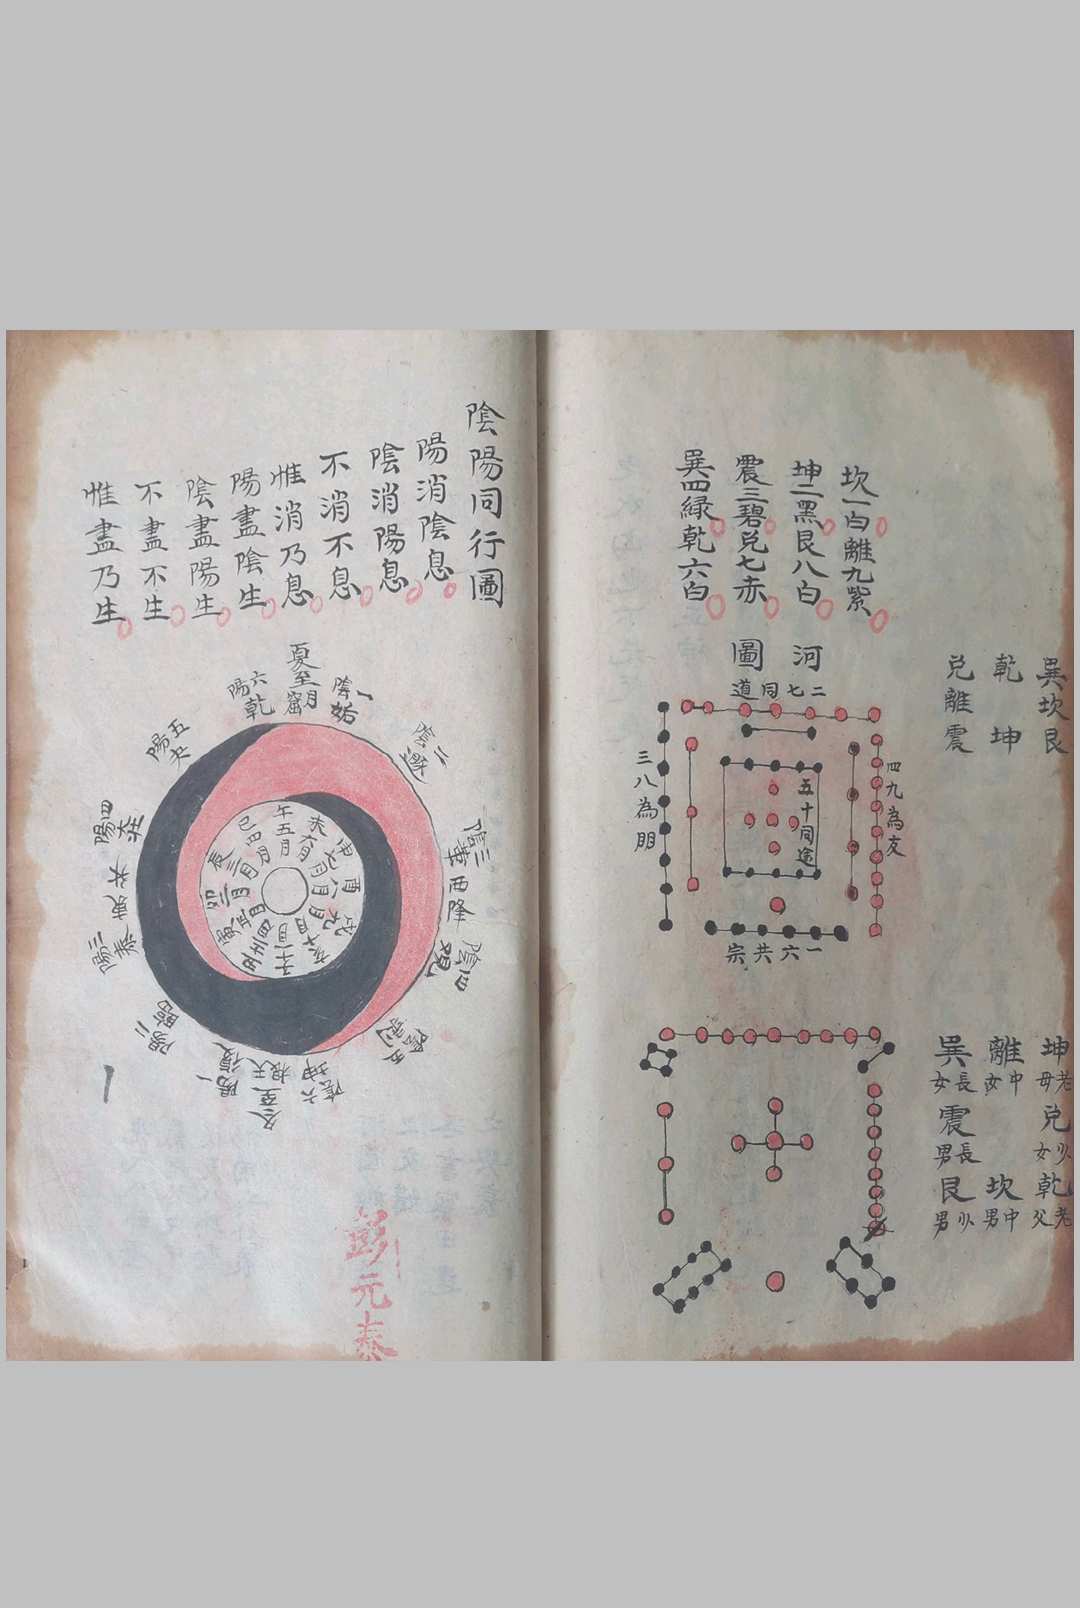 坎一白離九紫
坤二黑艮八白
震三碧兌七赤
巽四綠乾六白
河圖
二七同道
三八為朋
四九為友
五十同途
一六共宗
巽坎艮
乾坤
兌離震
坤老母
兌少女
乾老父
離中女
坎中男
巽長女
震長男
艮少男
陰陽同行圖
陽消陰息
陰消陽息
不消不息
惟消乃息
陽盡陰生
陰盡陽生
不盡不生
惟盡乃生
夏至月窟
陰一姤
陰二遯
陰三
酉降
陰四觀
陰五
陰六坤
天根
冬至
陽一復
陽二臨
陽三泰
陽四
陽五夬
陽六乾
午五月
未六月
七月
酉八月
戌九月
亥十月
子十一月
丑十二月
寅正月
卯二月
辰三月
巳四月
彭元泰